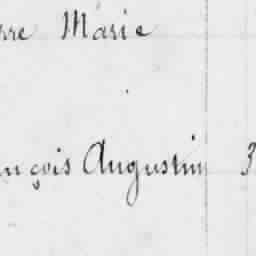 rre Marie
ançois Augustin 3